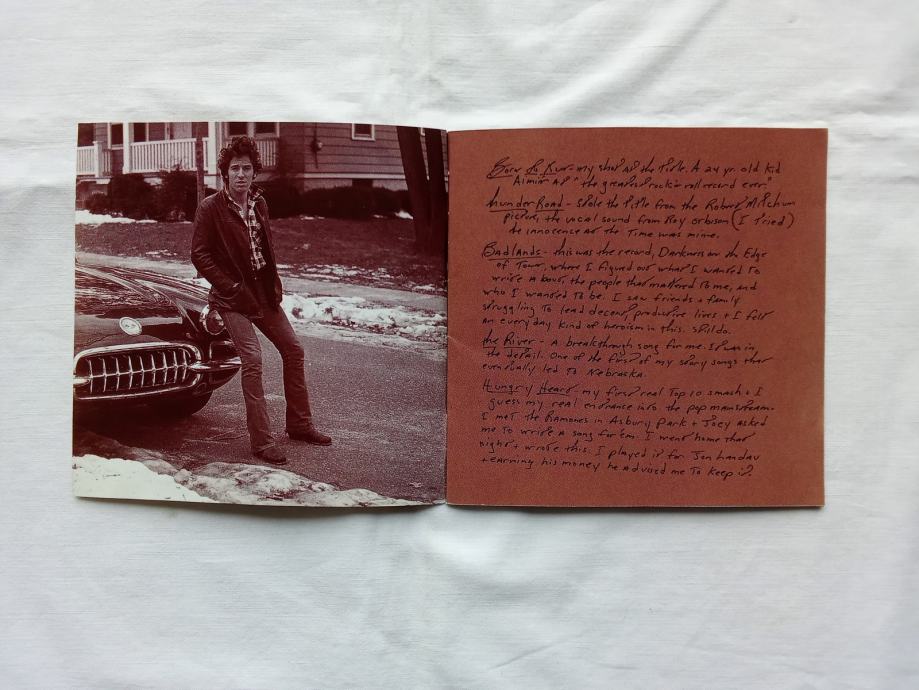 Born to Run - my shot at the title. A 24 yr. old kid
Aimin at "the greatest rock n roll record ever."
thunder Road - Stole the title from the Robert Mitchum
picture, the vocal sound from Roy Orbison (I tried)
the innocence at the time was mine.
Badlands - this was the record, Darkness on the Edge
of Town, where I figured out what I wanted to
write about, the people that mattered to me, and
who I wanted to be. I saw friends + family
struggling to lead decent, productive lives + I felt
an everyday kind of heroism in this. Still do.
the River - A breakthrough song for me. It was in
the detail. One of the first of my story songs that
eventually led to Nebraska.
Hungry Heart - my first real top 10 smash + I
guess my real entrance into the pop mainstream.
I met the Ramones in Asbury Park + Joey asked
me to write a song for em. I went home that
night + wrote this. I played it for Jon Landau
+ earning his money he advised me to keep it.